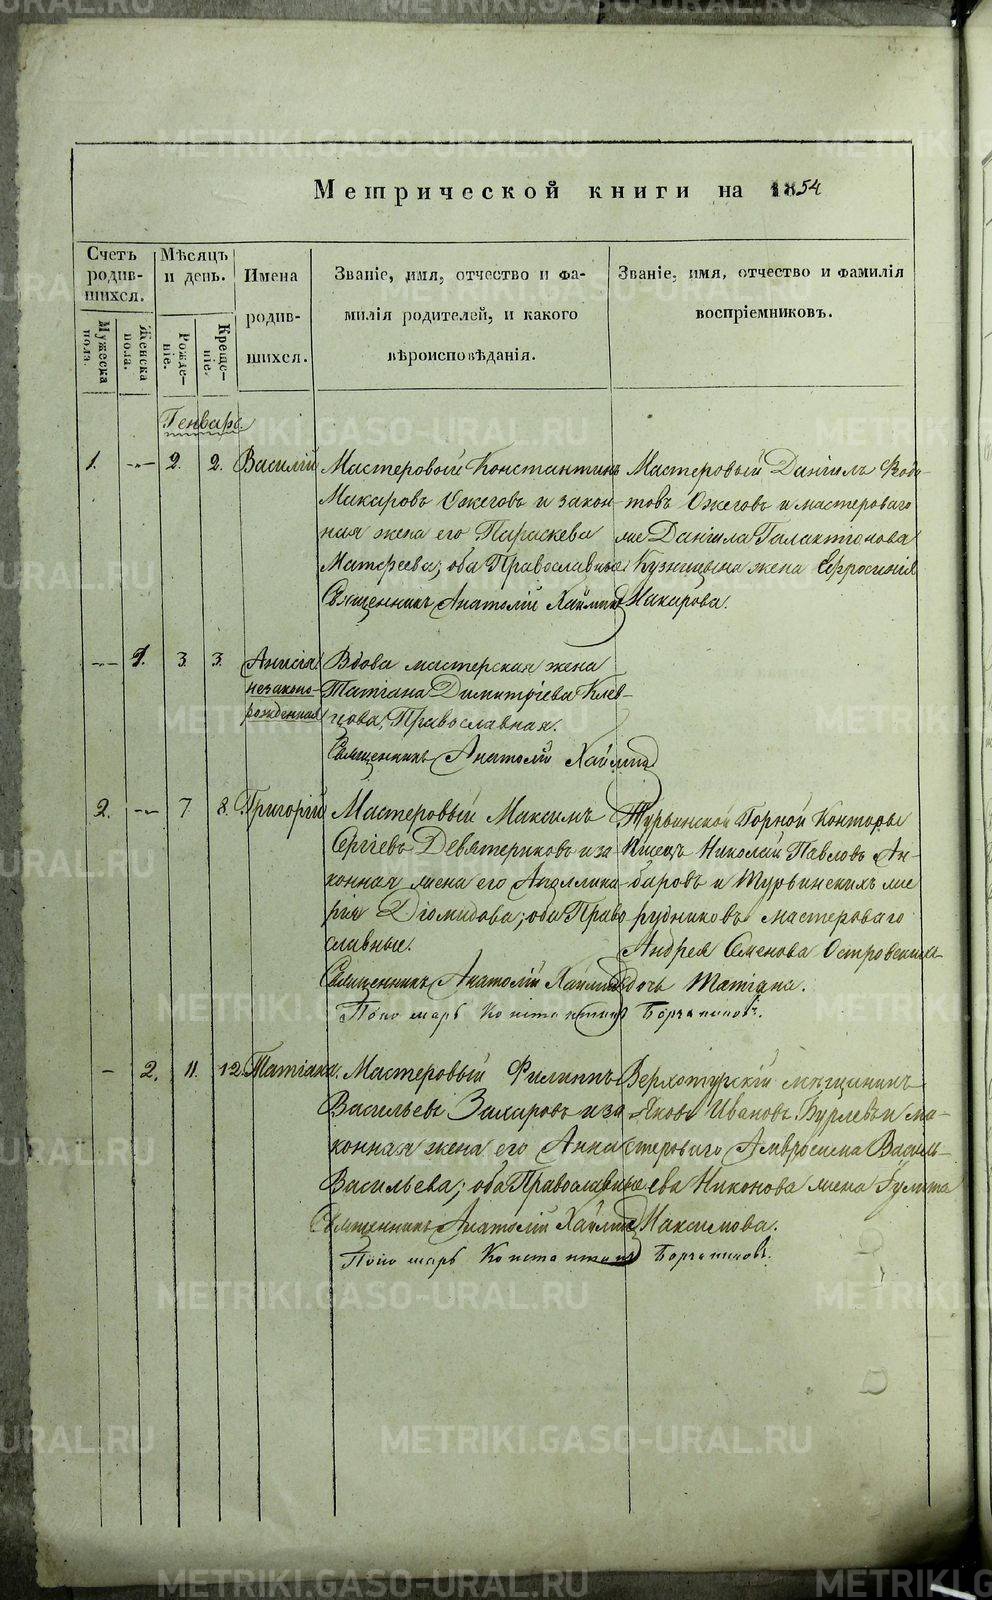 Метрической книги на 1854
Счетъ родившихся.
Мужеска пола.
Женска пола.
Мѣсяцъ и день.
Рожденіе.
Крещеніе.
Имена родившихся.
Званіе, имя, отчество и фамилія родителей, и какого вѣроисповѣданія.
Званіе, имя, отчество и фамилія воспріемниковъ.
Генварь.
1. -"- 2. 2. Василій
Мастеровой Константинъ
Макаровъ Ожеговъ и закон-
ная жена его Параскева
Матѳеева; оба Православные
Священникъ Анатолій
Мастеровый Даніилъ
Ожеговъ и мастероваго
Даніила Галактіонова
Кузницына жена Ефросинія
Макарова.
-"- 1. 3. 3. Анисія
незаконо-
рожденная
Вдова мастерская жена
Татіана Димитріева Клев-
цова, Православная.
Священникъ Анатолій
2. -"- 7 8. Григорій
Мастеровый Максимъ
Сергіевъ Девятериковъ и за
конная жена его Аполлина
рія Діомидова; оба Право
славные.
Священникъ Анатолій
Пономарь Константинъ
Турьинской Горной Конторы
Писецъ Николай Павловъ Ан-
баровъ и Турьинскихъ
рудниковъ мастероваго
Андрея Семенова Островскихъ
дочь Татіана.
- 2. 11. 12. Татіана.
Мастеровый Филиппъ
Васильевъ Захаровъ и за
конная жена его Анна
Васильева; оба Православные
Священникъ Анатолій
Пономарь Константинъ
Верхотурскій мѣщанинъ
Яковъ Ивановъ Бурлевъ и ма-
стероваго Амвросима Василь-
ева Никонова жена Іулита
Максимова.
METRIKI.GASO-URAL.RU